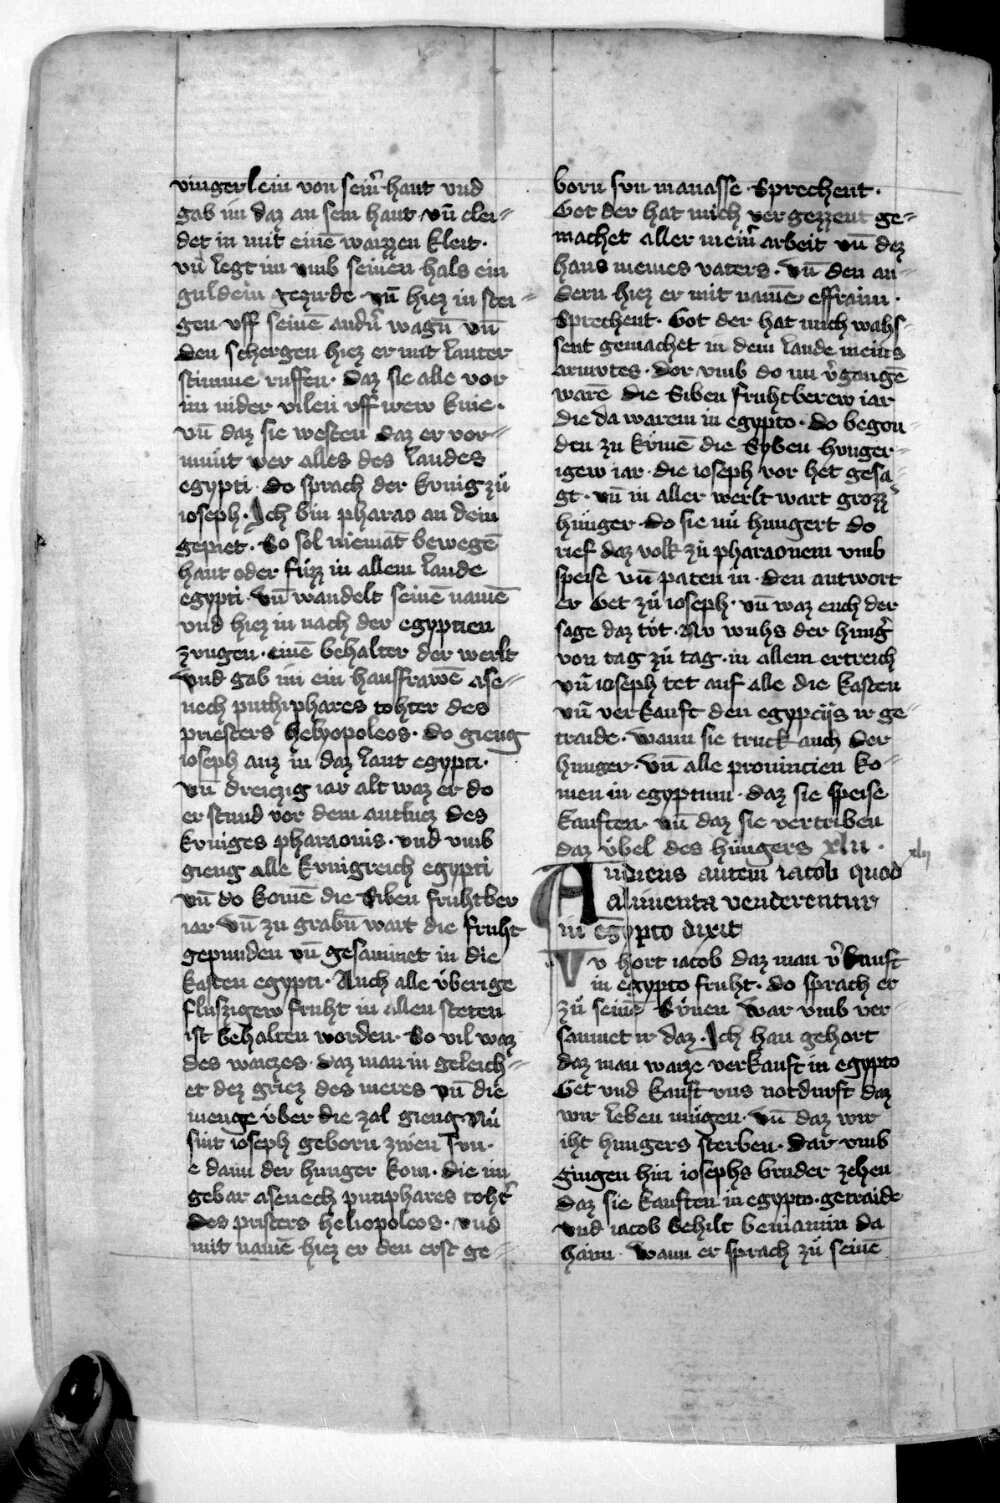 vingerlein von seinr̄ hant vnd
gab im daz an sein hant vn̄ clei-
det in mit einē waizzen kleit·
vn̄ legt im vmb seinen hals ein
guldein gezirde· vn̄ hiez in stei-
gen vff seinē andn̄ wagn̄ vn̄
den schergen hiez er mit lauter
stimme ruffen· daz sie alle vor
im nider vilen vff irew knie·
vn̄ daz sie westen daz er vor-
munt wer alles des landes
egypti· do sprach der kvnig zů
ioseph· Ich bin pharao an dein
gepiet· So sol niemāt bewegē
hant oder fůzz in allem lande
egypti· vn̄ wandelt seinē namē
vnd hiez in nach der egyptien
zvngen· einē behalter der werlt
vnd gab im ein hausfrawē ase-
nech puthiphares tohter des
priesters helyopoleos· do gieng
ioseph auz in daz lant egypti·
vn̄ dreizzig iar alt waz er do
er stund vor dem antlitz des
kvniges pharaonis· vnd vmb
gieng alle kvnigreich egypti
vn̄ do komē die siben fruhtber
iar vn̄ zu grabn̄ wart die fruht
gepunden vn̄ gesamnet in die
kasten egypti· Auch alle vberige
fluszigew fruht in allen steten
ist behalten worden· So vil waz
des waizes· daz man in geleich-
et dez griez des meres vn̄ die
menge vber die zal gieng Nů
sint ioseph geborn zwen svn·
e dann der hunger kom· die im
gebar asenech putiphares tohtr̄
des pristers heliopoleos· vnd
mit namē hiez er den erst ge-
born svn manasse· Sprechent·
Got der hat mich vergezzent ge-
machet aller meinr̄ arbeit vn̄ dez
haus meines vaters· vn̄ den an-
dern hiez er mit namē effraim·
Sprechent· Got der hat mich wahs-
sent gemachet in dem lande meins
armvtes· dor vmb do im v̄gangē
warē die siben fruhtberew iar
die da warem in egypto· do begon-
den zu kvmē die Syben hvnger-
igew iar· die ioseph vor het gesa-
gt· vn̄ in aller werlt wart grozz̄
hunger· do sie nů hungert do
rief daz volk zů pharaonem vmb
speise vn̄ paten in· den antwort
er Get zů ioseph· vn̄ waz euch der
sage daz tůt· Nv wuhs der hungr̄
von tag zů tag· in allem ertreich
vn̄ ioseph tet auf alle die kasten
vn̄ verkauft den egypciis ir ge-
traide· wann sie truck auch der
hunger· vn̄ alle prouincien ko-
men in egyptum· daz sie speise
kauften· vn̄ daz sie vertriben
daz vbel des hungers xlii·
xlij
Audiens autem iacob quod
alimenta venderentur
in egypto dixit
Nv hort iacob daz man v̄kauft
in egypto fruht· do sprach er
zů seinē Svnen War vmb ver-
saumet ir daz· Ich han gehort
daz man waize verkauft in egypto
Get vnd kauft vns notdurft daz
wir leben mugen· vn̄ daz wir
iht hungers sterben· Dar vmb
gingen hin iosephs bruder zehen
daz sie kauften in egypto· getraide
vnd iacob behilt beniamin da
haim· wann er sprach zů seinē